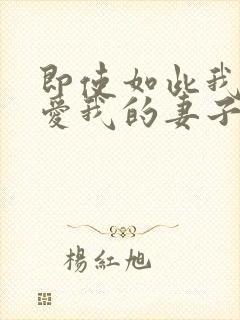 即使如此我
愛我的妻子
楊紅旭